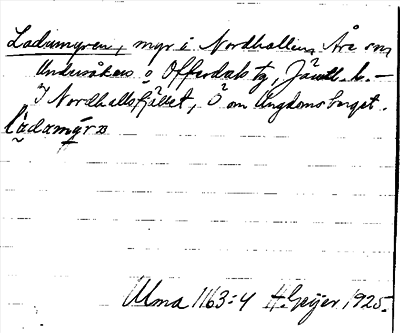 Ladumyren, myr i Nordhallen, Åre sn
Undersåkers o Offerdals tg, Jämtl. l. –
I Nordhallsfjället, Ö om Ungdomsberget.
Ulma 1163:4 H. Geijer 1925.